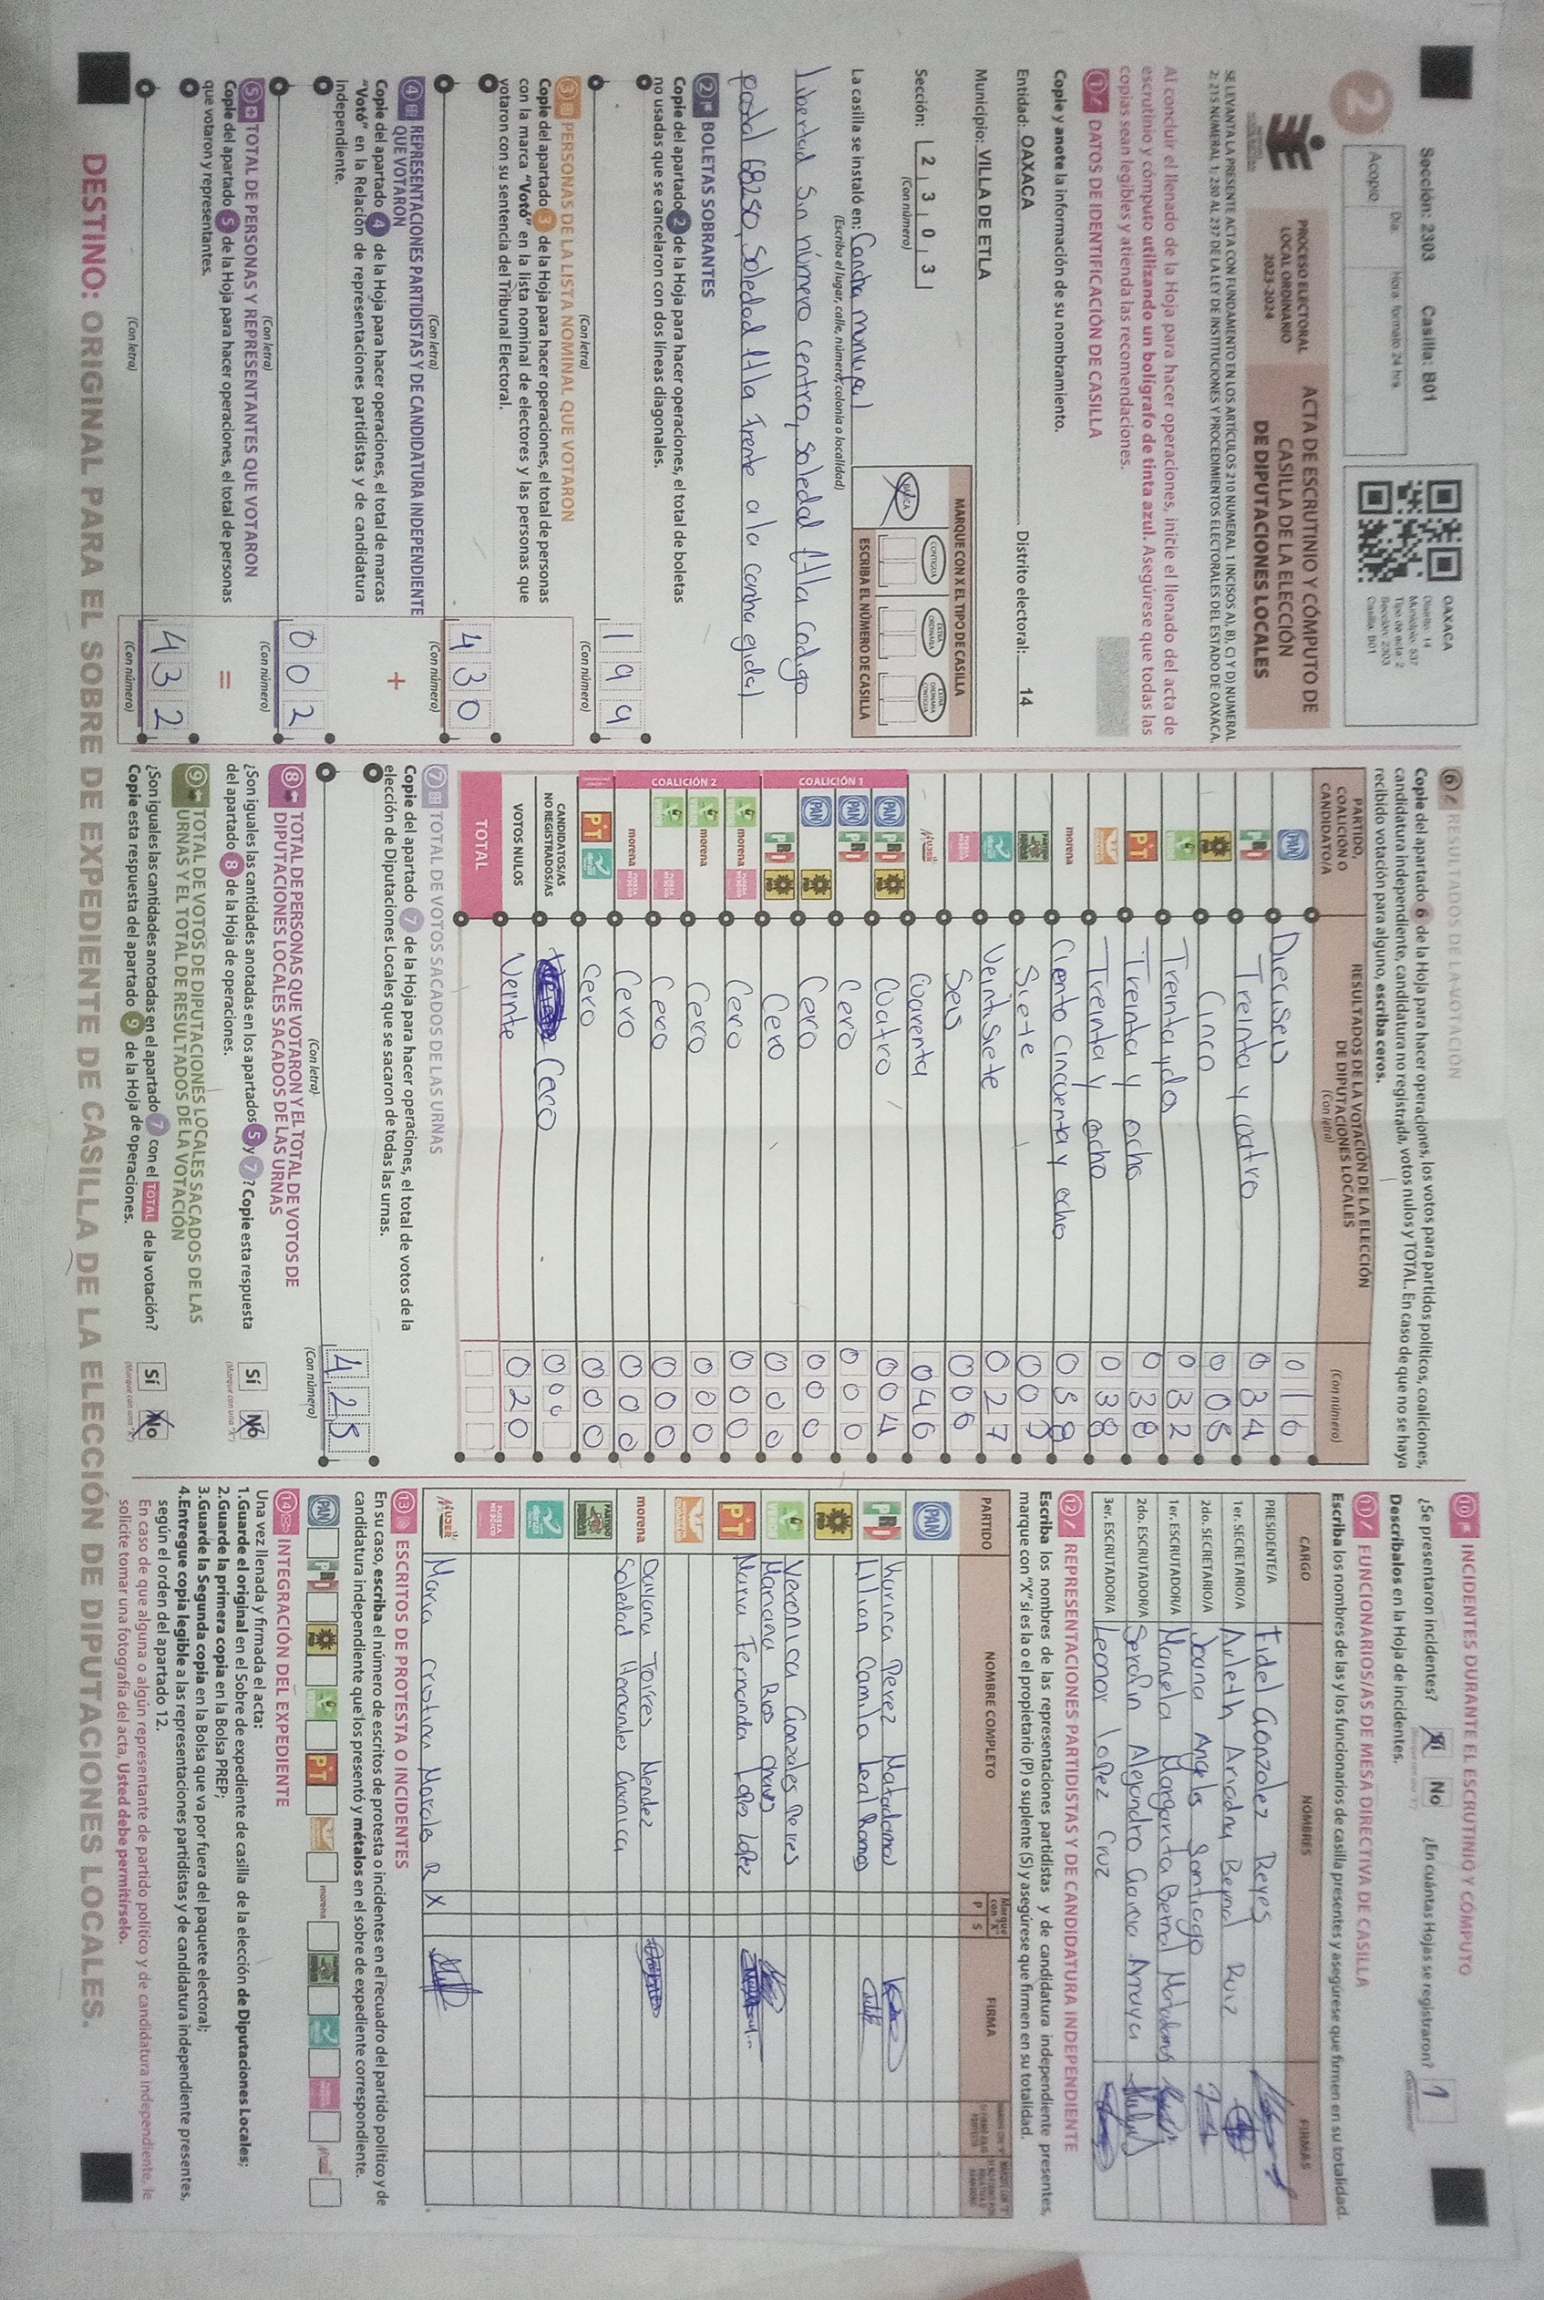 Sección: 2303 Casilla: B01
2
Día: Hora: formato 24 hrs
Acopio
OAXACA
Distrito: 14
Municipio: 537
Tipo de acta: 2
Sección: 2303
Casilla: B01
PROCESO ELECTORAL
LOCAL ORDINARIO
2023-2024
ACTA DE ESCRUTINIO Y CÓMPUTO DE
CASILLA DE LA ELECCIÓN
DE DIPUTACIONES LOCALES
SE LEVANTA LA PRESENTE ACTA CON FUNDAMENTO EN LOS ARTÍCULOS 210 NUMERAL 1 INCISOS A), B), C) Y D) NUMERAL
2; 215 NUMERAL 1; 230 AL 237 DE LA LEY DE INSTITUCIONES Y PROCEDIMIENTOS ELECTORALES DEL ESTADO DE OAXACA.
Al concluir el llenado de la Hoja para hacer operaciones, inicie el llenado del acta de
escrutinio y cómputo utilizando un bolígrafo de tinta azul. Asegúrese que todas las
copias sean legibles y atienda las recomendaciones.
1 DATOS DE IDENTIFICACIÓN DE CASILLA
Copie y anote la información de su nombramiento.
Entidad: OAXACA Distrito electoral: 14
Municipio: VILLA DE ETLA
Sección: 2 3 0 3
(Con número)
MARQUE CON X EL TIPO DE CASILLA
BÁSICA CONTIGUA EXTRAORDINARIA EXTRAORDINARIA CONTIGUA
ESCRIBA EL NÚMERO DE CASILLA
La casilla se instaló en: Cancha municipal
(Escriba el lugar, calle, número, colonia o localidad)
libertad sin número centro, soledad Etla codigo
postal 68250, Soledad Etla frente a la cancha ejidal
2 BOLETAS SOBRANTES
Copie del apartado 2 de la Hoja para hacer operaciones, el total de boletas
no usadas que se cancelaron con dos líneas diagonales.
1 9 9
(Con letra) (Con número)
3 PERSONAS DE LA LISTA NOMINAL QUE VOTARON
Copie del apartado 3 de la Hoja para hacer operaciones, el total de personas
con la marca "Votó" en la lista nominal de electores y las personas que
votaron con su sentencia del Tribunal Electoral.
4 3 0
(Con letra) (Con número)
4 REPRESENTACIONES PARTIDISTAS Y DE CANDIDATURA INDEPENDIENTE
QUE VOTARON
+
Copie del apartado 4 de la Hoja para hacer operaciones, el total de marcas
"Votó" en la Relación de representaciones partidistas y de candidatura
independiente.
0 0 2
(Con letra) (Con número)
5 TOTAL DE PERSONAS Y REPRESENTANTES QUE VOTARON
=
Copie del apartado 5 de la Hoja para hacer operaciones, el total de personas
que votaron y representantes.
4 3 2
(Con letra) (Con número)
6 RESULTADOS DE LA VOTACIÓN
Copie del apartado 6 de la Hoja para hacer operaciones, los votos para partidos políticos, coaliciones,
candidatura independiente, candidatura no registrada, votos nulos y TOTAL. En caso de que no se haya
recibido votación para alguno, escriba ceros.
PARTIDO,
COALICIÓN O
CANDIDATO/A
RESULTADOS DE LA VOTACIÓN DE LA ELECCIÓN
DE DIPUTACIONES LOCALES
(Con letra)
(Con número)
PAN Dieciseis 0 1 6
PRI Treinta y cuatro 0 3 4
PRD Cinco 0 0 5
VERDE Treinta y dos 0 3 2
PT Treinta y ocho 0 3 8
Treinta y ocho 0 3 8
morena Ciento cincuenta y ocho
Siete 0 0 7
Veintisiete 0 2 7
Seis 0 0 6
MUJER
COALICIÓN 1
PAN PRI PRD Cuatro 0 0 4
PAN PRI Cero 0 0 0
PAN PRD Cero 0 0 0
PRI PRD Cero 0 0 0
COALICIÓN 2
VERDE morena Cero 0 0 0
VERDE morena Cero 0 0 0
VERDE Cero 0 0 0
morena Cero 0 0 0
PT Cero 0 0 0
CANDIDATOS/AS
NO REGISTRADOS/AS Cero 0 0 0
VOTOS NULOS Veinte 0 2 0
TOTAL
7 TOTAL DE VOTOS SACADOS DE LAS URNAS
Copie del apartado 7 de la Hoja para hacer operaciones, el total de votos de la
elección de Diputaciones Locales que se sacaron de todas las urnas.
4 2 5
(Con letra) (Con número)
8 TOTAL DE PERSONAS QUE VOTARON Y EL TOTAL DE VOTOS DE
DIPUTACIONES LOCALES SACADOS DE LAS URNAS
¿Son iguales las cantidades anotadas en los apartados 5 y 7? Copie esta respuesta
del apartado 8 de la Hoja de operaciones.
Sí No
(Marque con una "X")
9 TOTAL DE VOTOS DE DIPUTACIONES LOCALES SACADOS DE LAS
URNAS Y EL TOTAL DE RESULTADOS DE LA VOTACIÓN
¿Son iguales las cantidades anotadas en el apartado 7 con el TOTAL de la votación?
Copie esta respuesta del apartado 9 de la Hoja de operaciones.
Sí No
(Marque con una "X")
10 INCIDENTES DURANTE EL ESCRUTINIO Y CÓMPUTO
¿Se presentaron incidentes? Sí No ¿En cuántas Hojas se registraron? 1
(Marque con una "X") (Con número)
Descríbalos en la Hoja de incidentes.
11 FUNCIONARIOS/AS DE MESA DIRECTIVA DE CASILLA
Escriba los nombres de las y los funcionarios de casilla presentes y asegúrese que firmen en su totalidad.
CARGO NOMBRES FIRMAS
PRESIDENTE/A Fidel Gonzalez Reyes
1er. SECRETARIO/A Arleth Ariadna Bernal Ruiz
2do. SECRETARIO/A Joana Angeles Santiago
1er. ESCRUTADOR/A Marcela Margarita Bernal Matadamas
2do. ESCRUTADOR/A Serafin Alejandro Garcia Amaya
3er. ESCRUTADOR/A Leonor Lopez Cruz
12 REPRESENTACIONES PARTIDISTAS Y DE CANDIDATURA INDEPENDIENTE
Escriba los nombres de las representaciones partidistas y de candidatura independiente presentes,
marque con "X" si es la o el propietario (P) o suplente (S) y asegúrese que firmen en su totalidad.
PARTIDO NOMBRE COMPLETO Marque con "X" P S FIRMA
PAN
PRI Karina Perez Matadamas
Lilian Camila Leal Ramos
PRD
VERDE Veronica Gonzales Perez
Mariana Rios Chavez
PT Maria Fernanda Lopez Lopez
morena Daiana Torres Mendez
Soledad Hernandez Garnica
MUJER Maria Cristina Morales R X
13 ESCRITOS DE PROTESTA O INCIDENTES
En su caso, escriba el número de escritos de protesta o incidentes en el recuadro del partido político y de
candidatura independiente que los presentó y métalos en el sobre de expediente correspondiente.
PAN PRI PRD VERDE PT morena
14 INTEGRACIÓN DEL EXPEDIENTE
Una vez llenada y firmada el acta:
1.Guarde el original en el Sobre de expediente de casilla de la elección de Diputaciones Locales;
2.Guarde la primera copia en la Bolsa PREP;
3.Guarde la Segunda copia en la Bolsa que va por fuera del paquete electoral;
4.Entregue copia legible a las representaciones partidistas y de candidatura independiente presentes,
según el orden del apartado 12.
En caso de que alguna o algún representante de partido político y de candidatura independiente, le
solicite tomar una fotografía del acta, Usted debe permitírselo.
DESTINO: ORIGINAL PARA EL SOBRE DE EXPEDIENTE DE CASILLA DE LA ELECCIÓN DE DIPUTACIONES LOCALES.